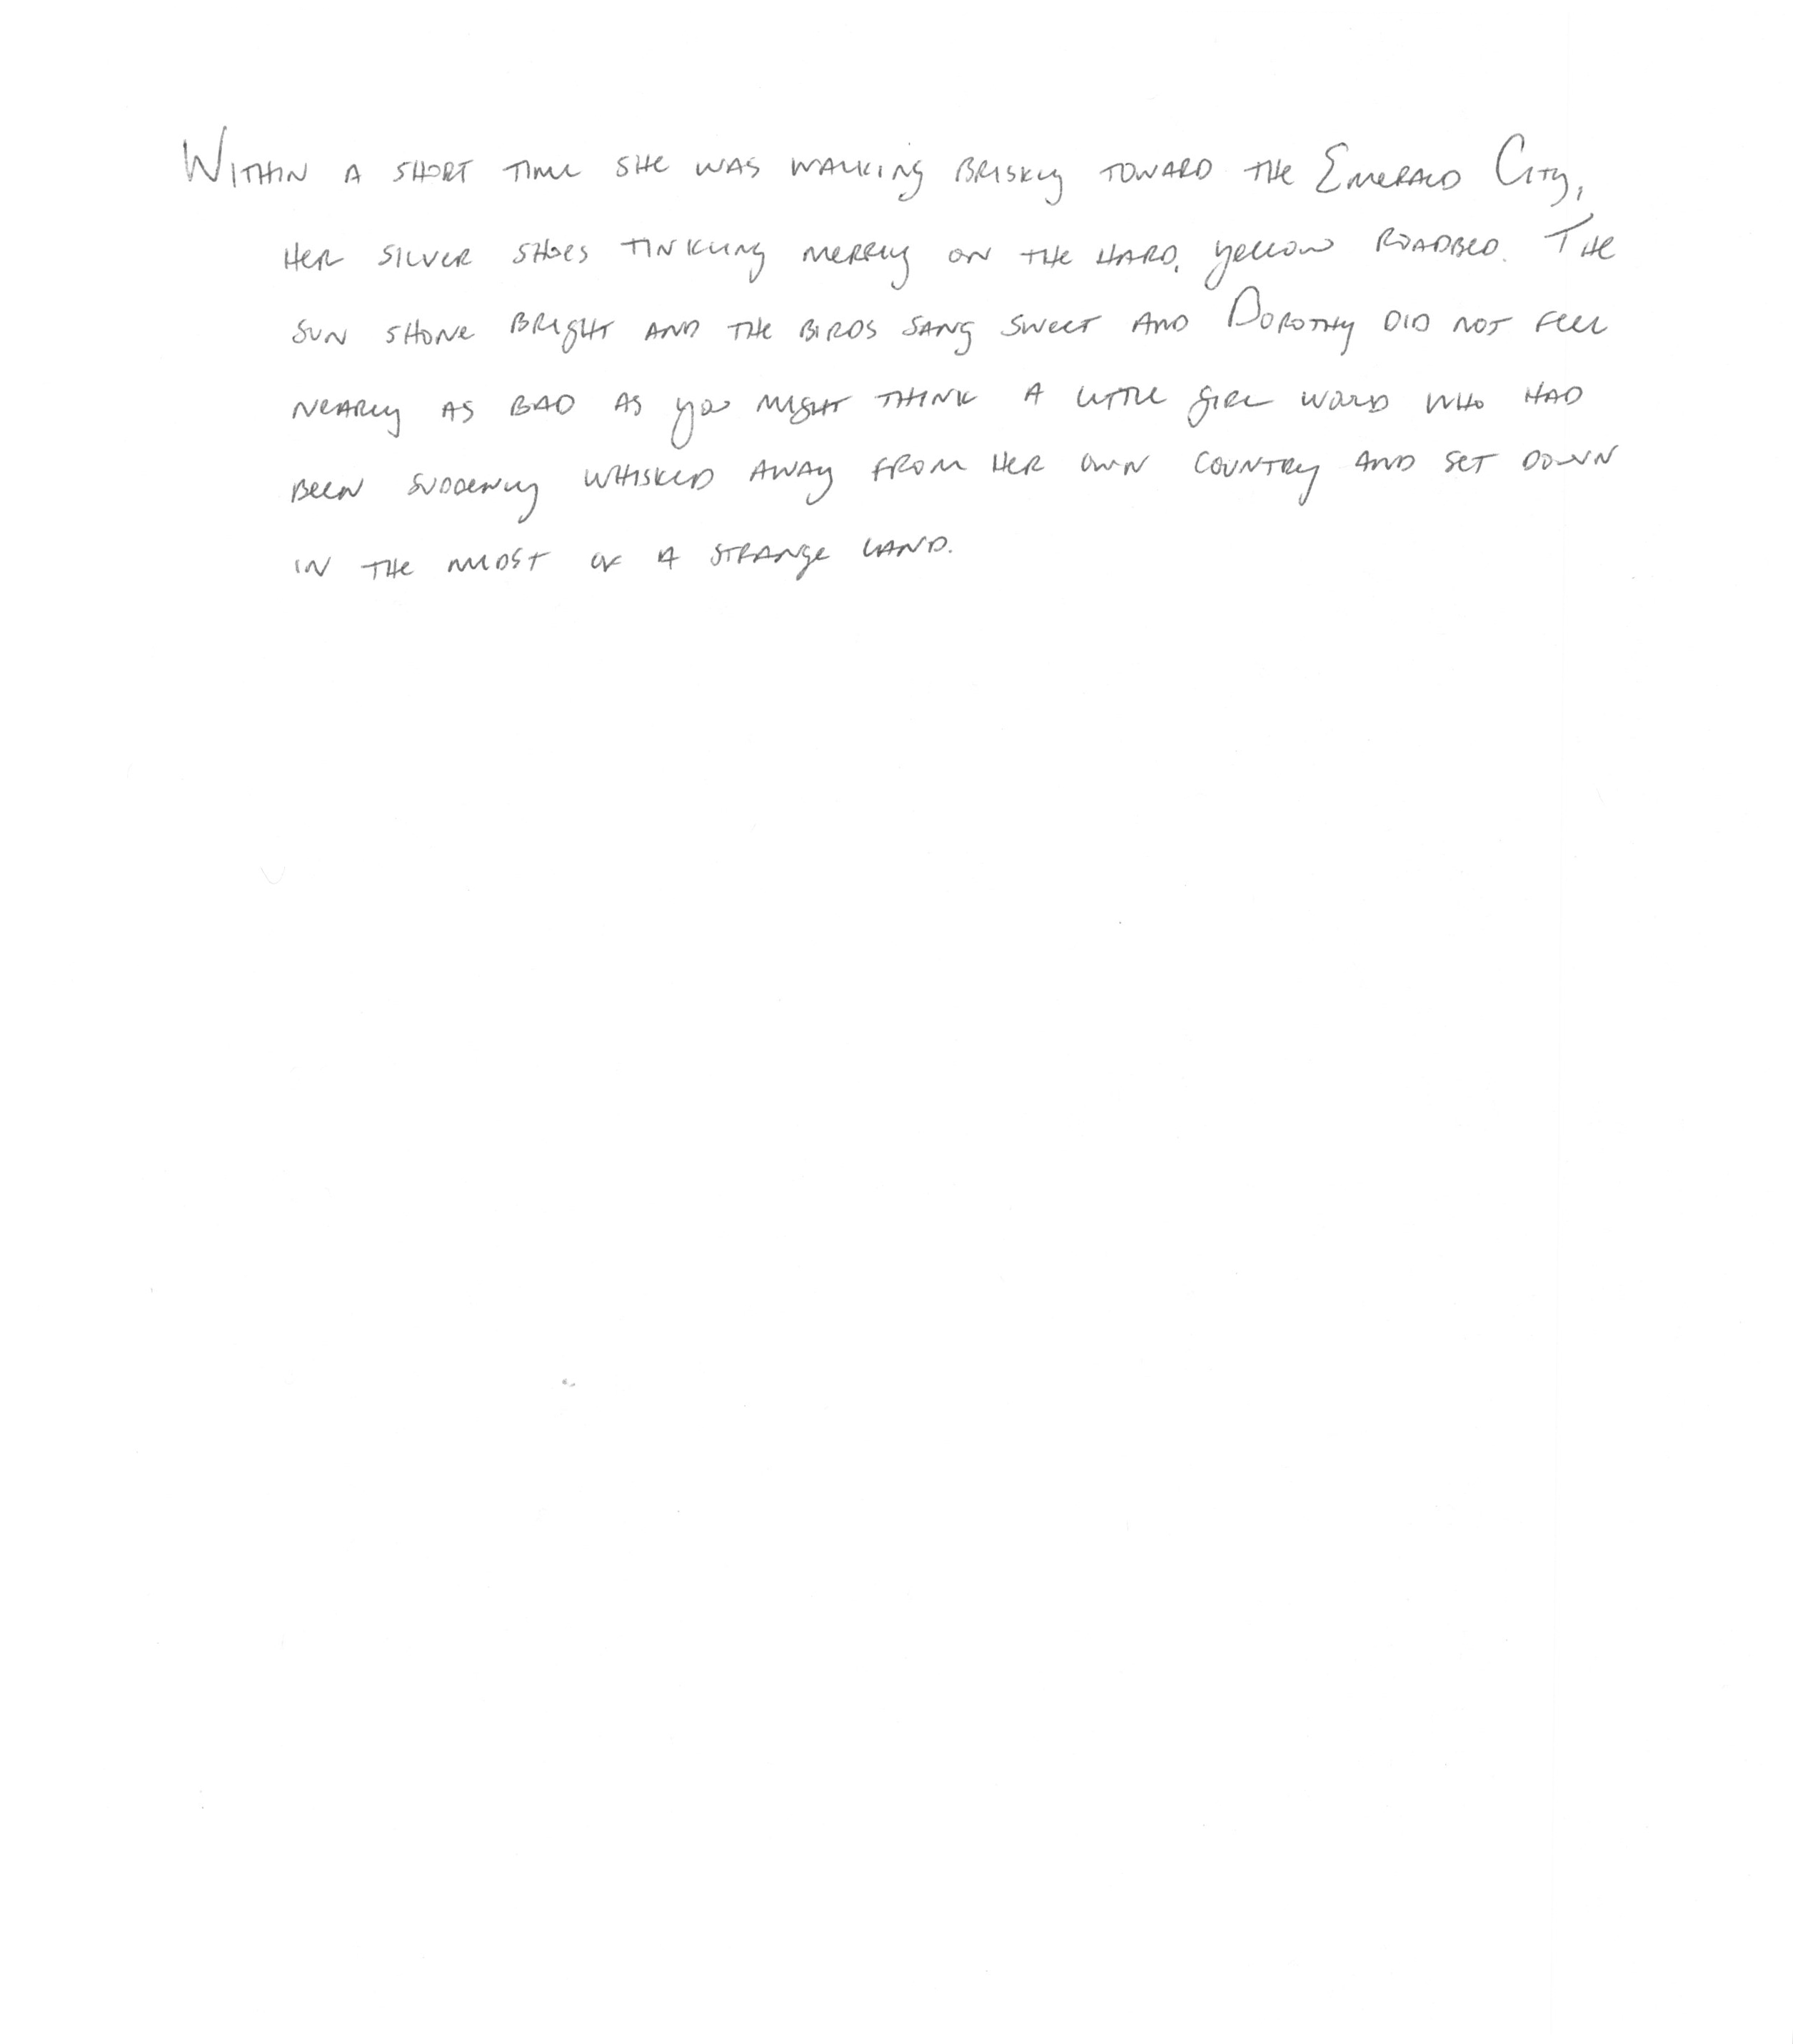 Within a short time she was walking briskly toward the Emerald City,
her silver shoes tinkling merrily on the hard, yellow roadbed. The
sun shone bright and the birds sang sweet and Dorothy did not feel
nearly as bad as you might think a little girl would who had
been suddenly whisked away from her own country and set down
in the midst of a strange land.